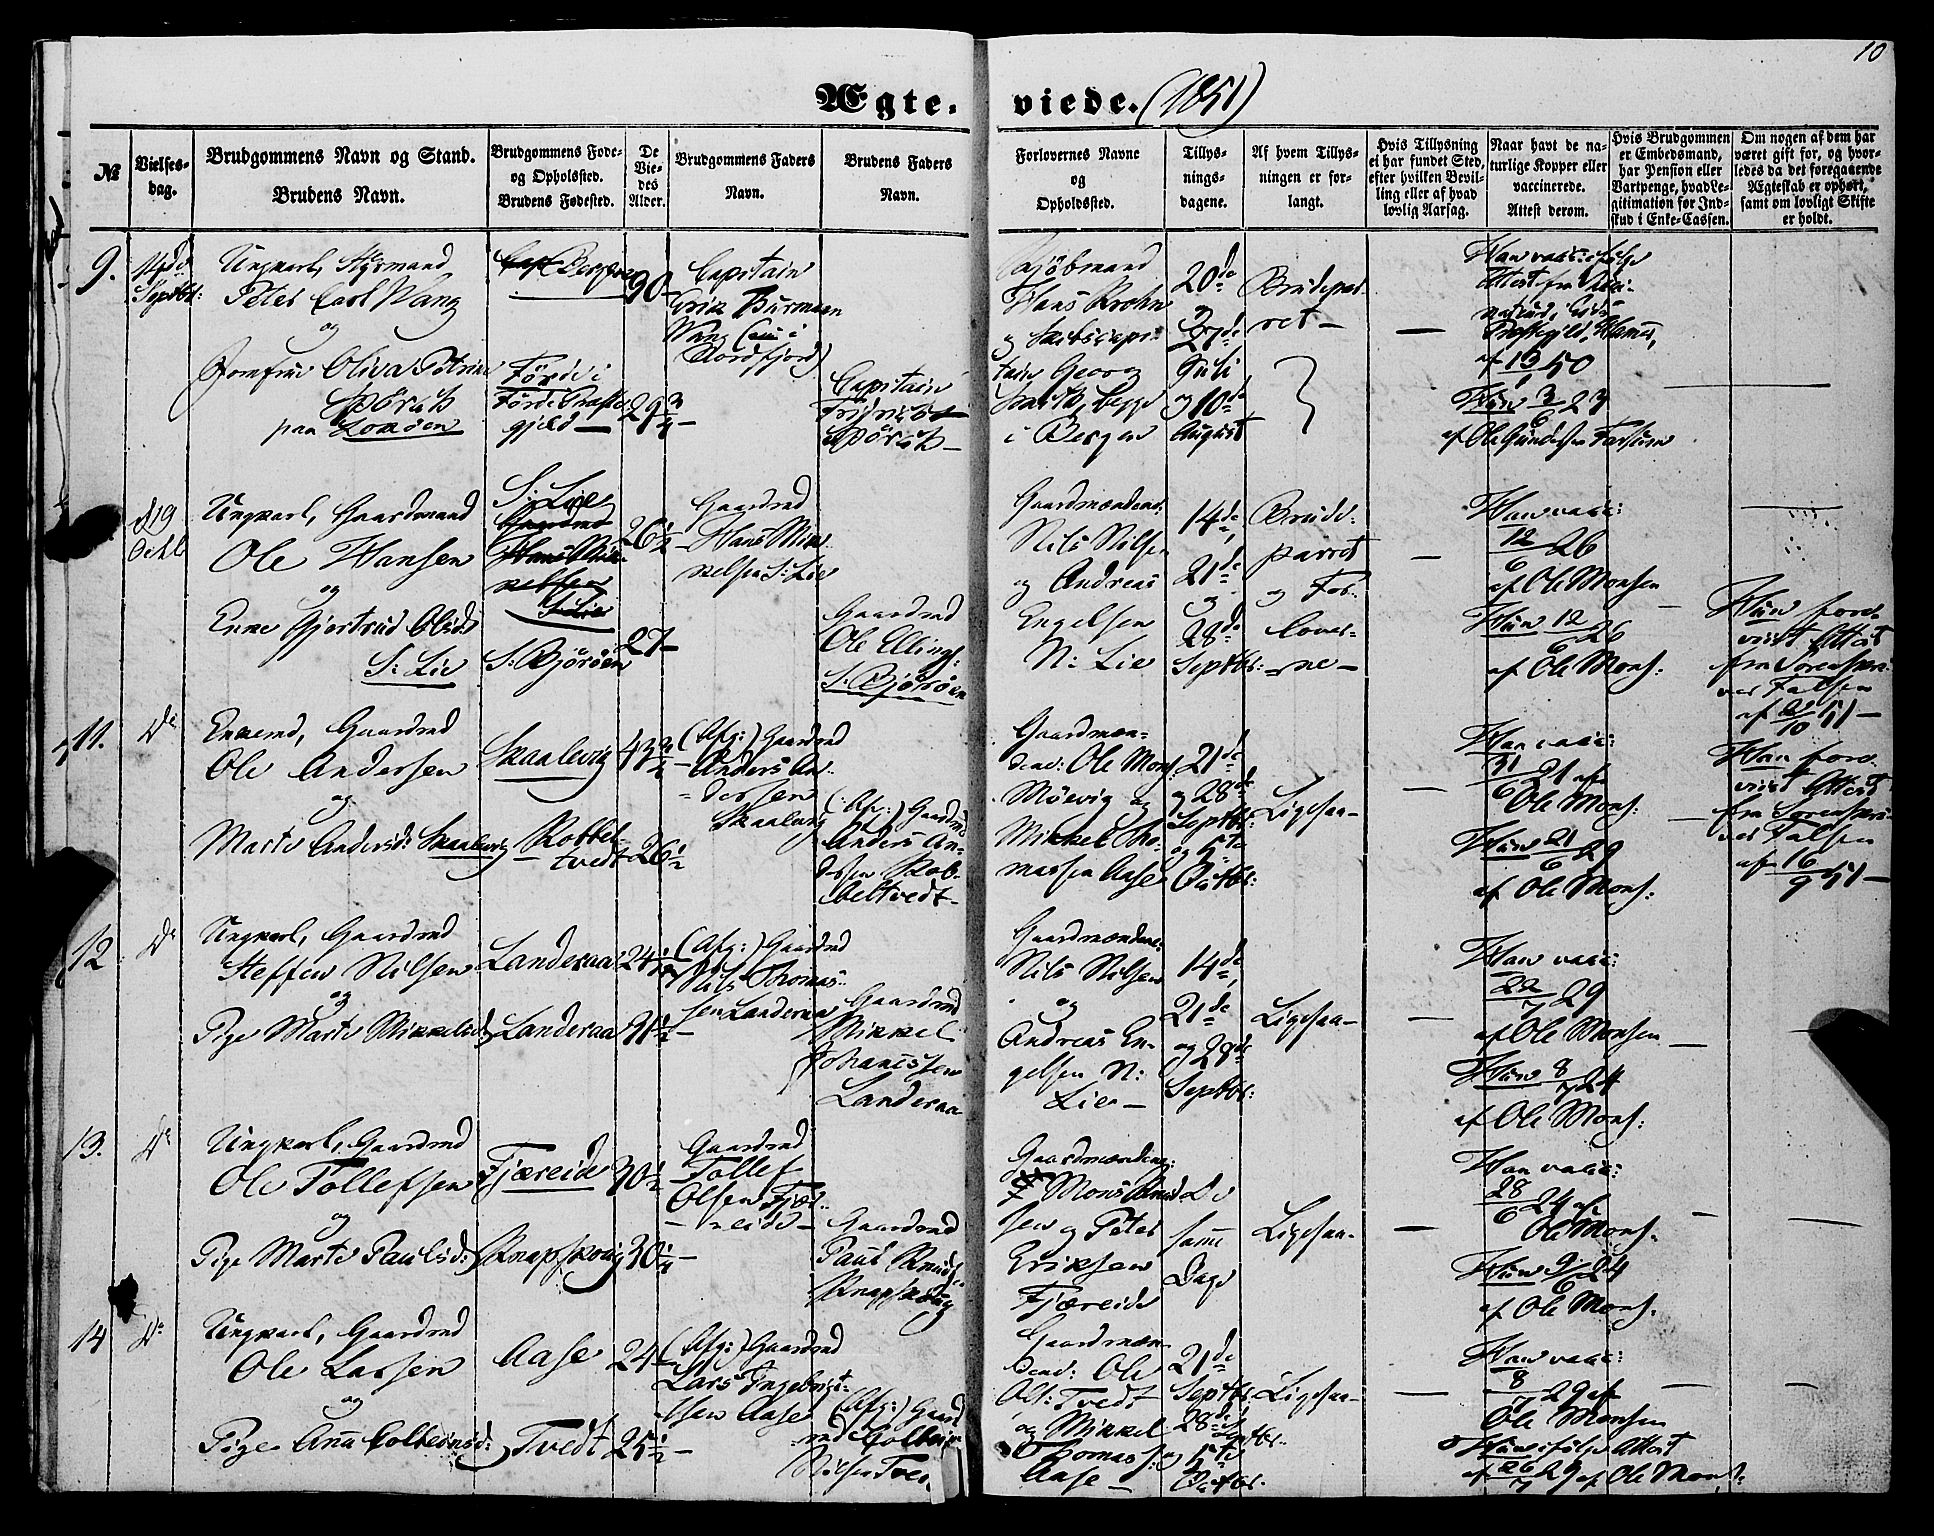 10
Ægte- viede. (1851)
№
Vielses-
dag.
Brudgommens Navn og Stand.
Brudens Navn.
Brudgommens Føde-
og Opholdssted.
Brudens Fødested.
De
Vie-
des
Alder.
Brudgommens Faders
Navn.
Brudens Faders
Navn.
Forlovernes Navne
og
Opholdssted.
Tillys-
nings-
dagene.
Af hvem Tillys-
ningen er for-
langt.
Hvis Tillysning
ei har fundet Sted,
efter hvilken Bevil-
ling eller af hvad
lovlig Aarsag.
Naar havt de na-
turlige Kopper eller
vaccinerede.
Attest derom.
Hvis Brudgommen
er Embedsmand,
har Pension eller
Vartpenge, hvad Le-
gitimation for Ind-
skud i Enke-Cassen.
Om nogen af dem har
været gift før, og hvor-
ledes da det foregaaende
Ægteskab er ophørt,
samt om lovligt Skifte
er holdt.
9.
14de
Septbr:
Ungkarl, Styrmand
Peter Carl Wang
og
Jomfrue Oliva Petrine
paa Losden
Førde i
Førde Præste
gjeld
30
29 3/4
Capitain
Nordfjord)
Capitain
Kjøbmand
Hans Krohn
Georg
i Bergen
20de
27de
Juli
og 10de
August
Brudepar-
ret
Han vacc: ifølge
Attest fra
af
50
Hun 3/6 23
af Ole
d 19
Octb
Ungkarl, Gaardmand
Ole Hansen
og
Enke Gjertrud Olsd:
S: Lie
S: Lie
S: Bjørøen
26 1/2
27
Gaardmd
Hans Mik-
kelsen S: Lie
Gaardmd
Ole Ellings:
S: Bjørøen
Gaardmændene:
Nils Nilsen
og Andreas
Engelsen
N: Lie
14de,
21de
og
28de
Septbr:
Brude-
parret
og For-
lover-
ne
Han vacc:
12/6 26
af Ole Monsen
Hun 12/6 26
af Ole Mons:
Hun fore-
viist Attest
fra Sorenskri-
ver Falsen
af
51
11.
Do
Enkemd, Gaardmd
Ole Andersen
og
Marte Andersd: Skaalevig
Skaalevig
Robbel-
tvedt
26 1/2
(Afg:) Gaardmd
Anders An-
dersen
Skaalevig
(Afg:) Gaardmd
Anders An-
dersen Rob-
beltvedt
Gaardmæn-
dene: Ole Mons:
Møevig og
Mikkel Tho-
massen Aase
21de
og 28de
Septbr:
og 5te
Octbr:
Ligesaa
Han vacc:
21 af
Ole Mons:
Hun 21/6 29
af Ole Mons:
Han fore-
viist Attest
fra Sorenskri-
ver Falsen
af 16/9 51
12
Do
Ungkarl, Gaardmd
Steffen Nilsen
og
Pige Marte Mikkelsd:
Landeraa
Landeraa
24 1/2
31 1/2
(Afg:) Gaardmd
Nils Thomas-
sen Landeraa
Gaardmd
Mikkel
Johanessen
Landeraa
Gaardmændene:
Nils Nilsen
og
Andreas En-
gelsen N:
Lie
14de,
21de
og 28de
Septbr:
Ligesaa
Han vacc:
22/7 29
af Ole Monsen
Hun 8/7 24
af Ole Mons:
13.
Do
Ungkarl, Gaardmd
Ole Tollefsen
og
Pige Marte Paulsd:
Fjæreide
Knapskoug
30 1/2
30 1/4
Gaardmd
Tollef
Olsen Fjæ-
reide
Gaardmd
Paul Knuds:
Knapskoug
Gaardmændene:
Mons Knud-
sen og Peter
Eriksen
Fjæreide
De
samme
Dage
Ligesaa
Han vacc:
28/6 24 af
Ole Mons:
Hun 9/6 24
af Ole Mons:
14
Do
Ungkarl, Gaardmd
Ole Larsen
og
Pige Anna Colbeinsd:
Aase
Tvedt
24
25 1/2
(Afg:) Gaardmd
Lars Ingebrigt-
sen Aase
(Afg:) Gaard
md Colbein
Nilsen Tvedt
Gaardmæn-
dene: Ole
Ols: Tvedt
og Mikkel
Thomas:
Aase
21de
Septbr:
28de
Septbr:
og 5te
Octbr:
Ligesaa
Han vacc:
8/7 29 af
Ole Monsen
Hun ifølge Attest
af 26/7 29 af Ole Mons: